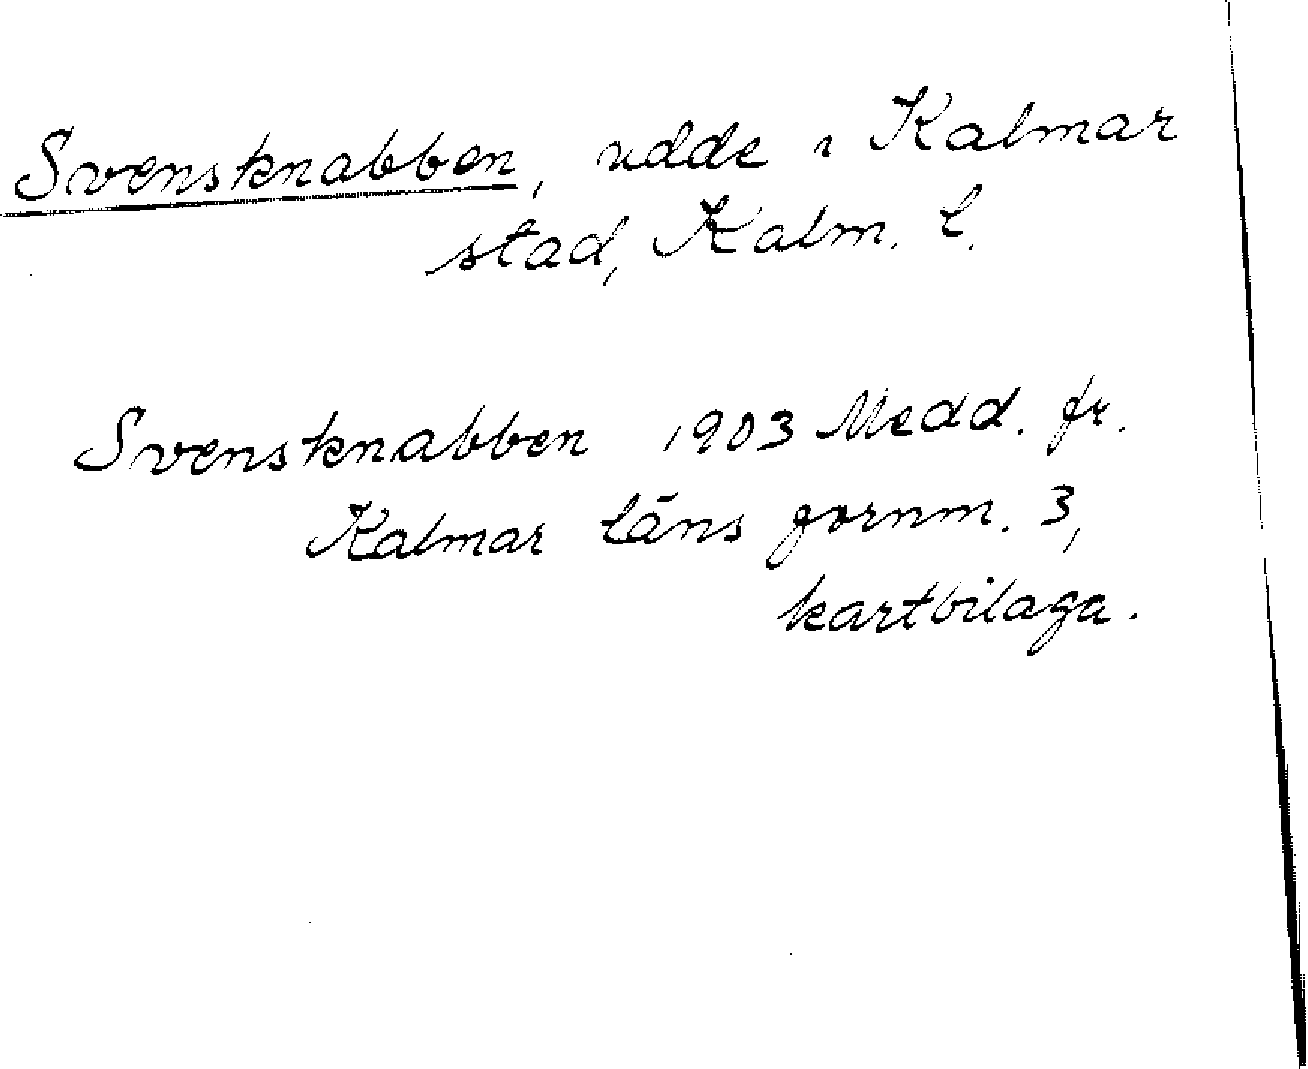 Svensknabben, udde i Kalmar
stad, Kalm. l.
Svensknabben 1903 Medd. fr.
Kalmar läns fornm. 3,
kartbilaga.